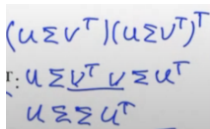 (UΣVᵀ)(UΣVᵀ)ᵀ
: UΣVᵀVΣUᵀ
UΣΣUᵀ